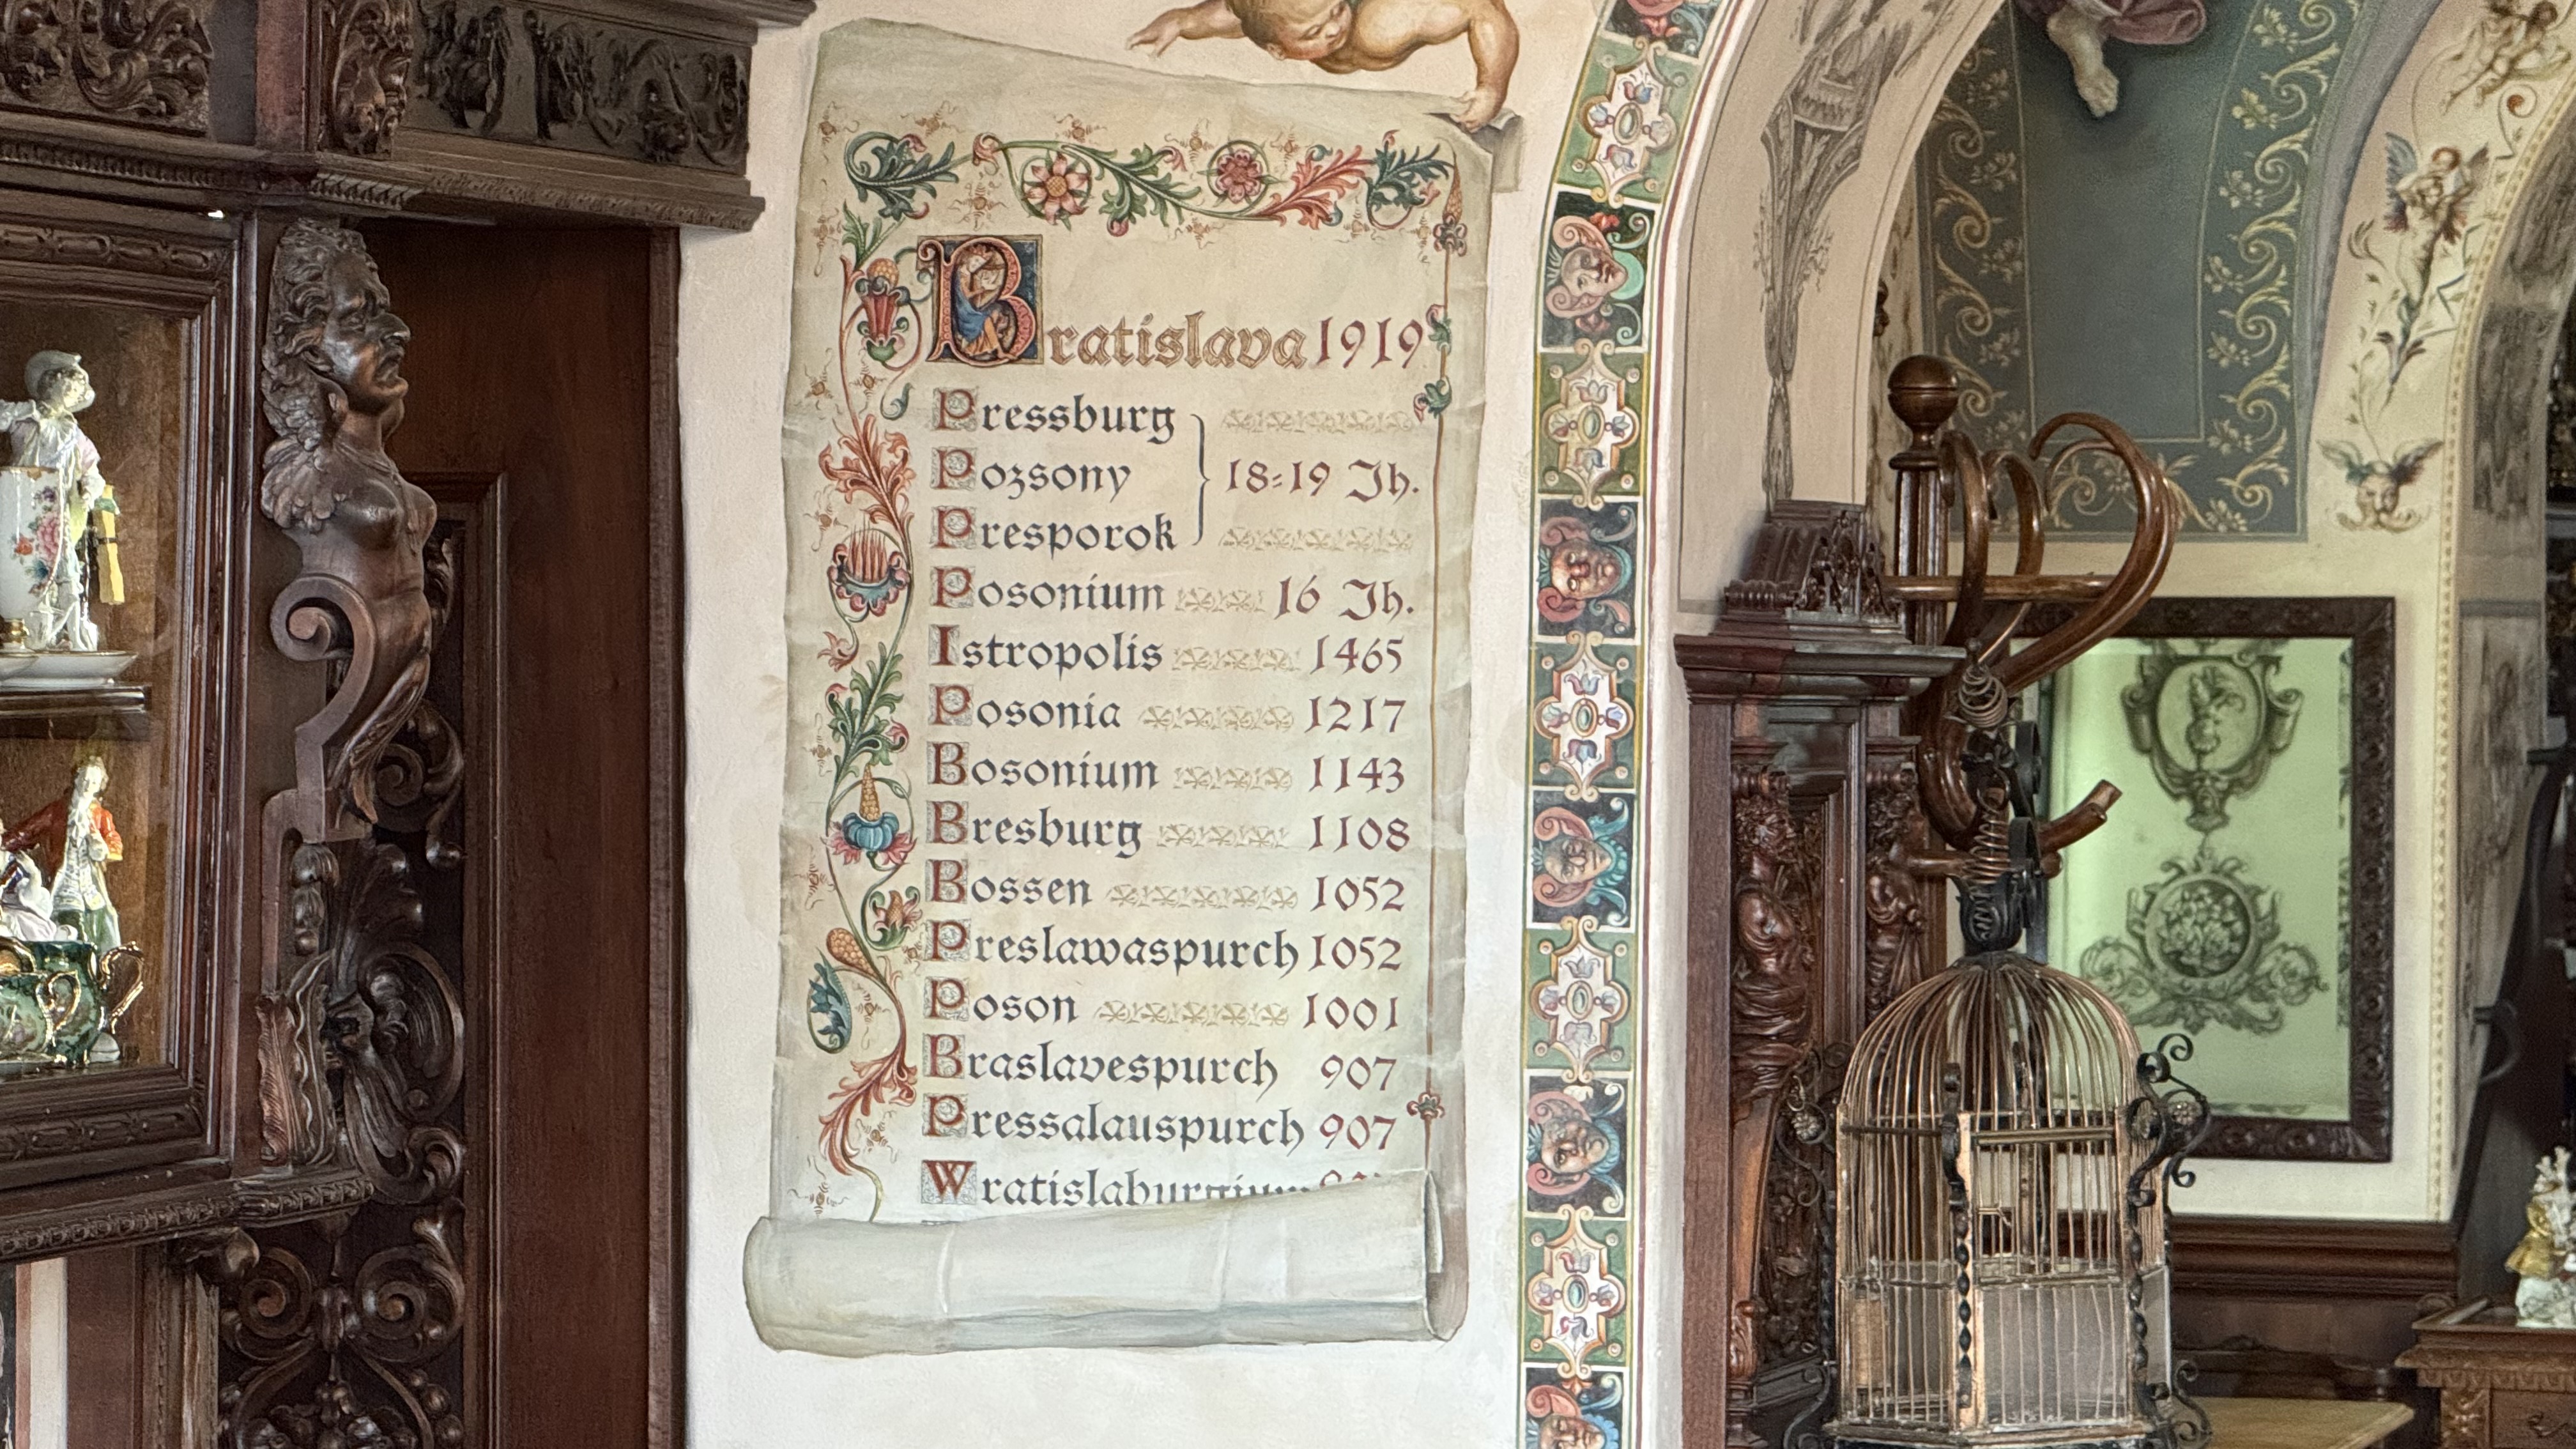 Bratislava 1919
Pressburg
Pozsony 18=19 Jh.
Presporok
Posonium 16 Jh.
Istropolis 1465
Posonia 1217
Bosonium 1143
Bresburg 1108
Bossen 1052
Preslawaspurch 1052
Poson 1001
Braslavespurch 907
Pressalauspurch 907
Wratislaburgium